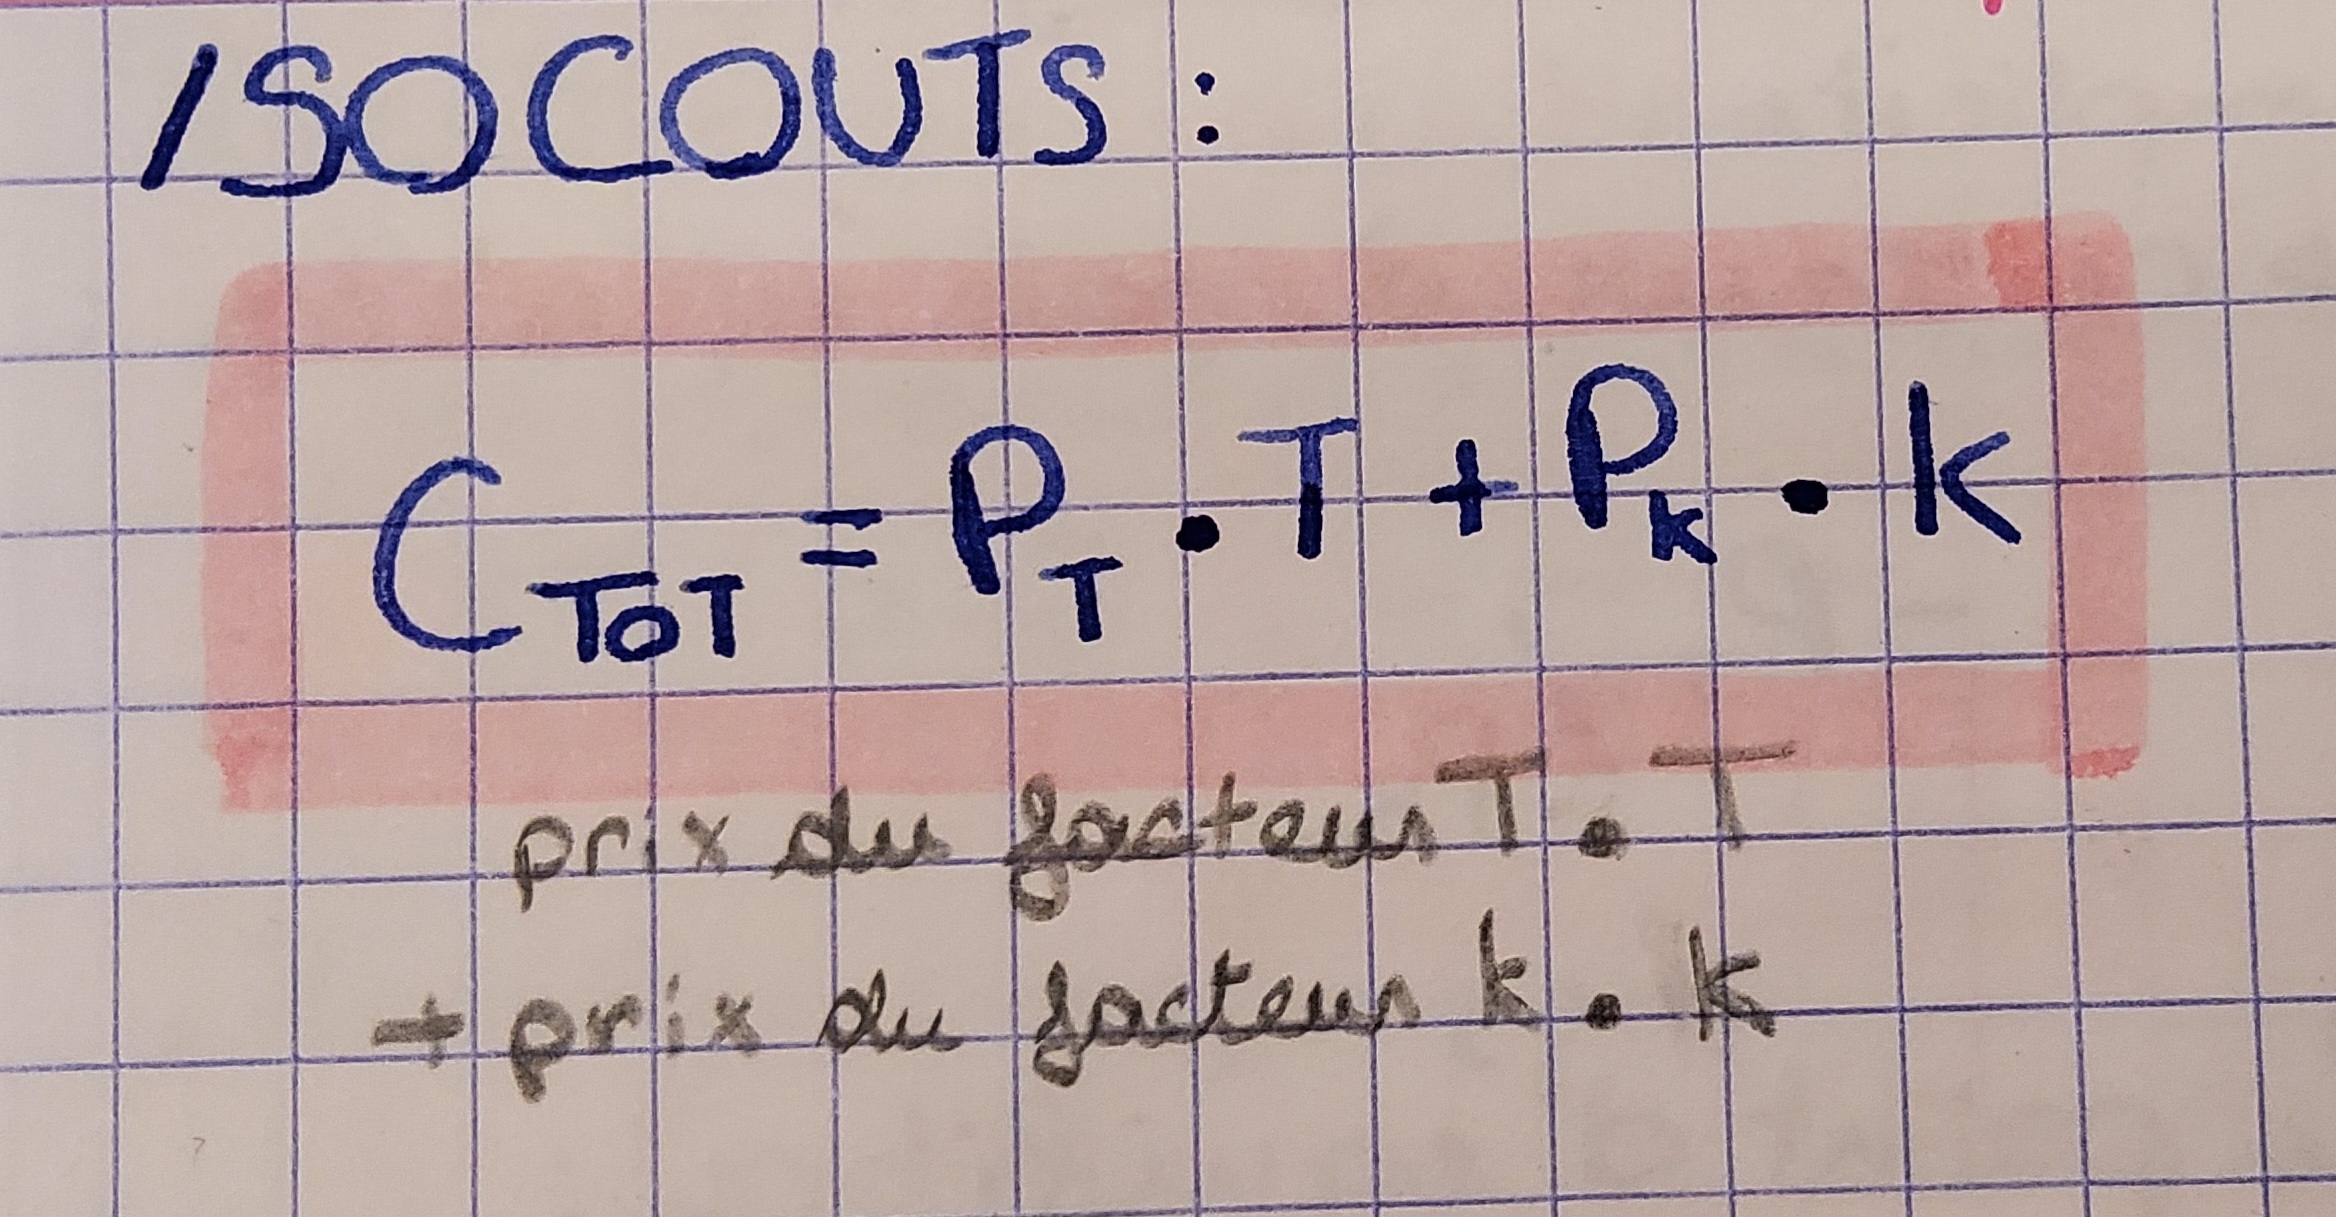 ISOCOUTS :
C_TOT = P_T • T + P_K • K
prix du facteur T • T
+ prix du facteur k • K